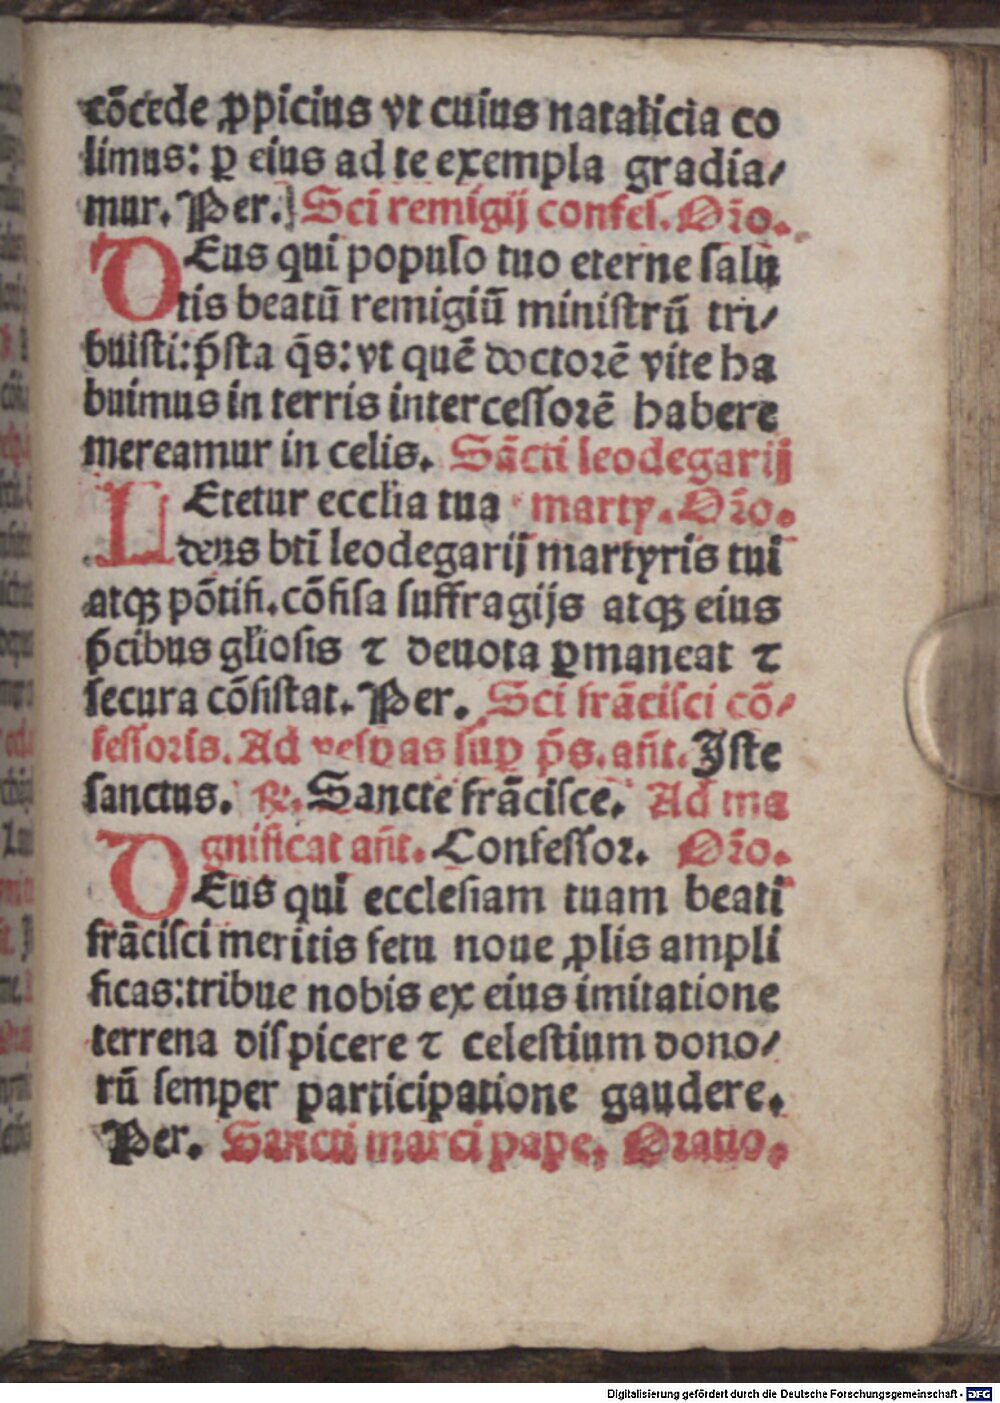 cōcede ꝓpicius vt cuius natalicia co
limus: ꝑ eius ad te exempla gradia/
mur. Per. Sci remigij confeſ. Oꝛ̄o.
DEus qui populo tuo eterne ſalu
tis beatū remigiū miniſtrū tri/
buiſti: p̄ſta q̄s: vt quē doctoꝛē vite ha
buimus in terris interceſſoꝛē habere
mereamur in celis. Sācti leodegarij
LEtetur eccłia tua marty. Oꝛ̄o.
deus bt̄i leodegarij martyris tui
atqꝫ pōtifi. cōfiſa ſuffragijs atqꝫ eius
p̄cibus głioſis ⁊ deuota ꝑmaneat ⁊
ſecura cōſiſtat. Per. Sci frāciſci cō/
feſſoꝛis. Ad veſꝑas ſuꝑ p̄s. an̄t. Iſte
ſanctus. ℞. Sancte frāciſce. Ad ma
gnificat an̄t. Confeſſoꝛ. Oꝛ̄o.
DEus qui eccleſiam tuam beati
frāciſci meritis fetu noue ꝓlis ampli
ficas: tribue nobis ex eius imitatione
terrena diſpicere ⁊ celeſtium dono/
rū ſemper participatione gaudere.
Per. Sancti marci pape. Oꝛatio.
Digitalisierung gefördert durch die Deutsche Forschungsgemeinschaft - DFG